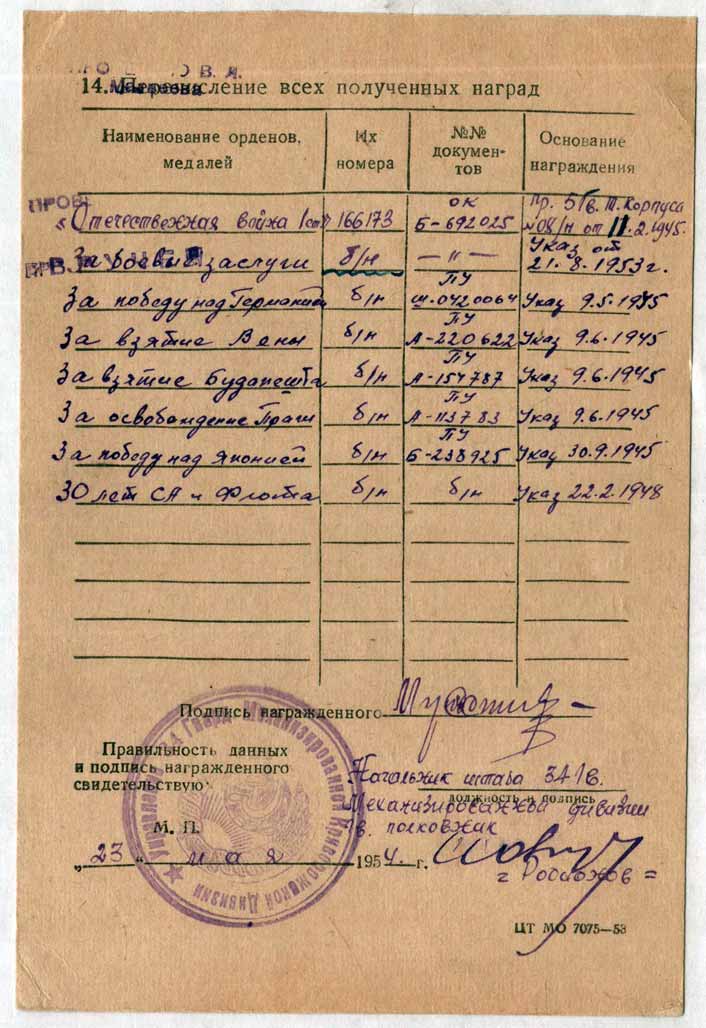 В. А.
14. Перечисление всех полученных наград
Наименование орденов, медалей
Их номера
№№ докумен-тов
Основание награждения
ПРОВЕ
Отечественная война I ст. 166173 ОК Б-692025 Пр. 5 Гв. Т. Корпуса №08/н от 11.2.1945.
За боевые заслуги б/н — 〃 — Указ от 21.8.1953 г.
За победу над Германией б/н ПУ Ш-0420064 Указ 9.5.1945
За взятие Вены б/н ПУ А-220622 Указ 9.6.1945
За взятие Будапешта б/н ПУ А-154787 Указ 9.6.1945
За освобождение Праги б/н ПУ А-113783 Указ 9.6.1945
За победу над Японией б/н ПУ Б-238925 Указ 30.9.1945
30 лет СА и Флота б/н б/н Указ 22.2.1948
Подпись награжденного
Правильность данных
и подпись награжденного
свидетельствую:
Начальник штаба 34 Гв.
должность и подпись
Механизированной дивизии
Гв. полковник
М. П.
„23" мая 1954 г.
Управление Гвард. Механизированной Криворожской Дивизии
ЦТ МО 7075—53